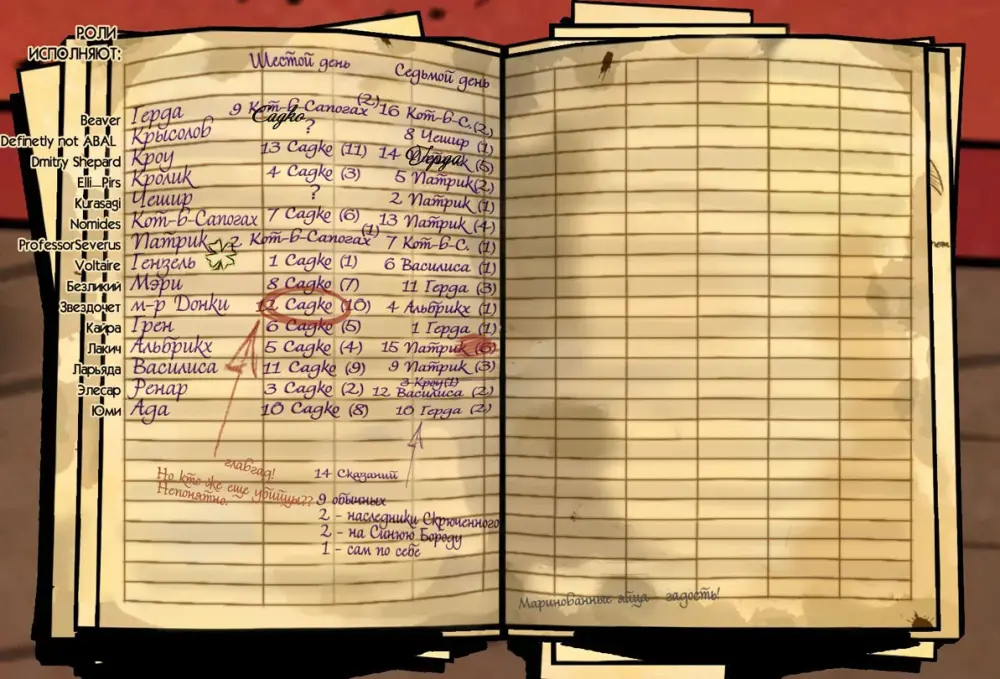 РОЛИ
ИСПОЛНЯЮТ:
Шестой день Седьмой день
Beaver Герда 9 Кот-в-Сапогах (2) 16 Кот-в-С. (2)
Садко
Definetly not ABAL Крысолов ? 8 Чешир (1)
Dmitry Shepard Кроу 13 Садко (11) 14 Герда (5)
Elli_Pirs Кролик 4 Садко (3) 5 Патрик (2)
Kurasagi Чешир ? 2 Патрик (1)
Nomides Кот-в-Сапогах 7 Садко (6) 13 Патрик (4)
ProfessorSeverus Патрик 2 Кот-в-Сапогах (1) 7 Кот-в-С. (1)
Voltaire Гензель 1 Садко (1) 6 Василиса (1)
Безликий Мэри 8 Садко (7) 11 Герда (3)
Звездочет м-р Донки 12 Садко (10) 4 Альбрикх (1)
Кайра Грен 6 Садко (5) 1 Герда (1)
Лакич Альбрикх 5 Садко (4) 15 Патрик (6)
Ларьяда Василиса 11 Садко (9) 9 Патрик (3)
3 Кроу (1)
Элесар Ренар 3 Садко (2) 12 Василиса (2)
Юми Ада 10 Садко (8) 10 Герда (2)
главгад!
Но кто же еще убийцы??
Непонятно.
14 Сказаний
9 обычных
2 - наследники Скрюченного
2 - на Синюю Бороду
1 - сам по себе
Маринованные яйца - гадость!